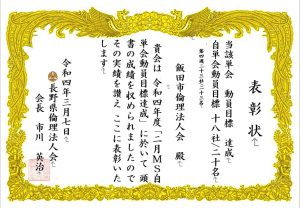 表彰状
当該単会 動員目標 達成
自単会動員目標 十八社/二十名
飯田市倫理法人会 殿
貴会は 令和四年度「二月MS自
単会動員目標達成」に於いて 頭
書の成績を収められましたので
その実績を讃え ここに表彰いた
します
令和四年三月七日
長野県倫理法人会
会長 市川 英治